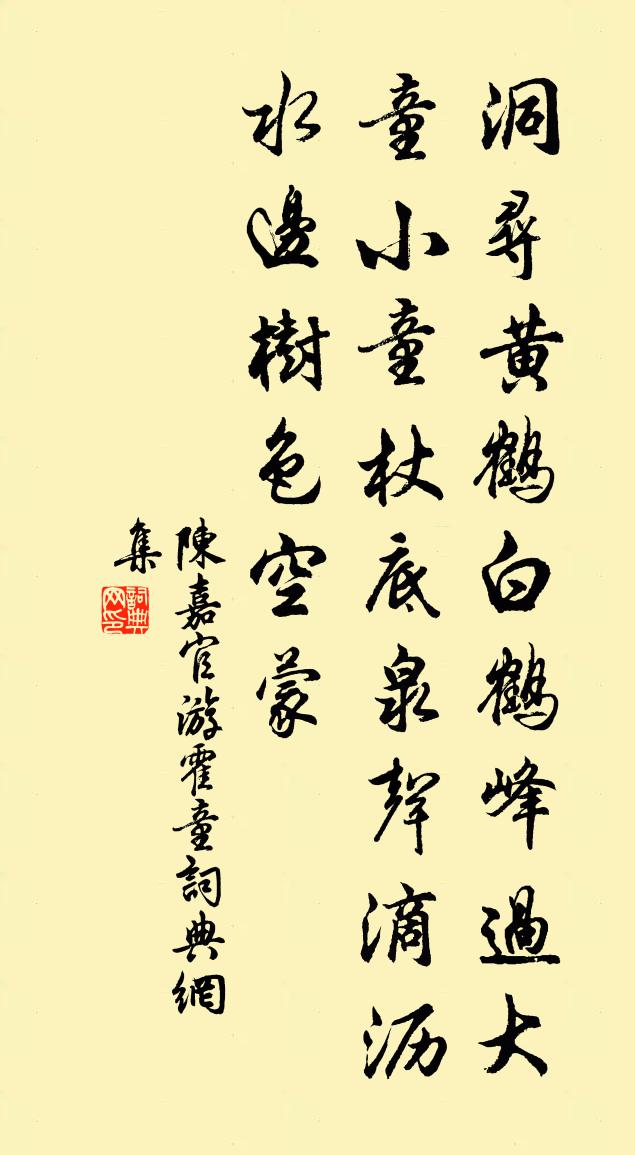 洞尋黄鶴白鶴峰過大
童小童杖底泉聲滴沥
水邊樹色空蒙
陳嘉官游霍童詞典網
集
詞典
网印